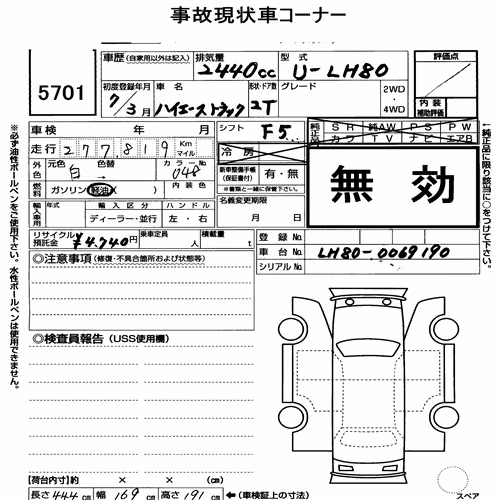 事故現状車コーナー
5701
車歴 (自家用以外は記入)
排気量 2440cc
型式 U-LH80
初度登録年月 7/3月
車名 ハイエーストラック
型・ドア数 2T
グレード
2WD・4WD
評価点
内装補助評価
車検 年 月
シフト F5
純正 SR 純AW PS PW
カワ TV ナビ エアB
走行 277819 Km マイル
冷房
無効
外色 元色 白→ 色替
カラーNo 048
新車整備手帳(保証書付) 有・無
※書類と一緒に保管して下さい。
燃料 ガソリン 軽油 ( )
内装色
名義変更期限 月 日
輸入車用 年式 輸入区分 ハンドル
ディーラー・並行 左・右
リサイクル預託金 ¥4,740円
乗車定員 人
積載量 t
登録No.
車台No. LH80-0069190
シリアルNo.
◎注意事項 (修復・不具合箇所および状態等)
◎検査員報告 (USS使用欄)
【荷台内寸】(約 × × )
長さ 444 cm 幅 169 cm 高さ 191 cm ←(車検証上の寸法)
スペア
※必ず油性ボールペンをご使用下さい。水性ボールペンは使用できません。
←純正品に限り該当に○をつけて下さい